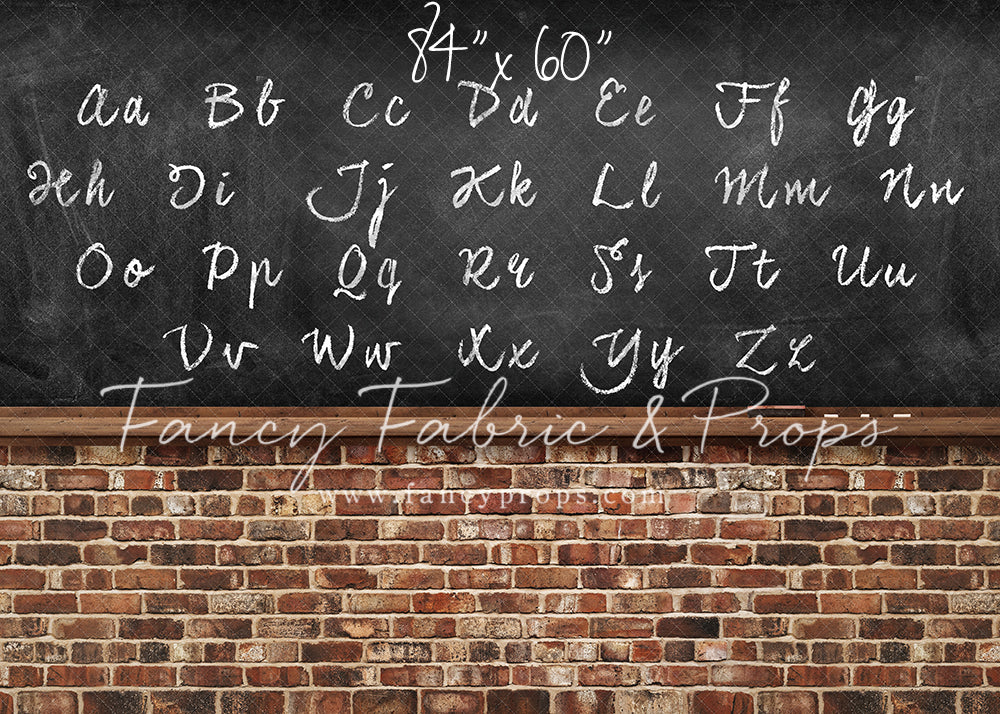 84” x 60”
Aa Bb Cc Dd Ee Ff Gg
Hh Ii Jj Kk Ll Mm Nn
Oo Pp Qq Rr Ss Tt Uu
Vv Ww Xx Yy Zz
Fancy Fabric & Props
www.fancyprops.com